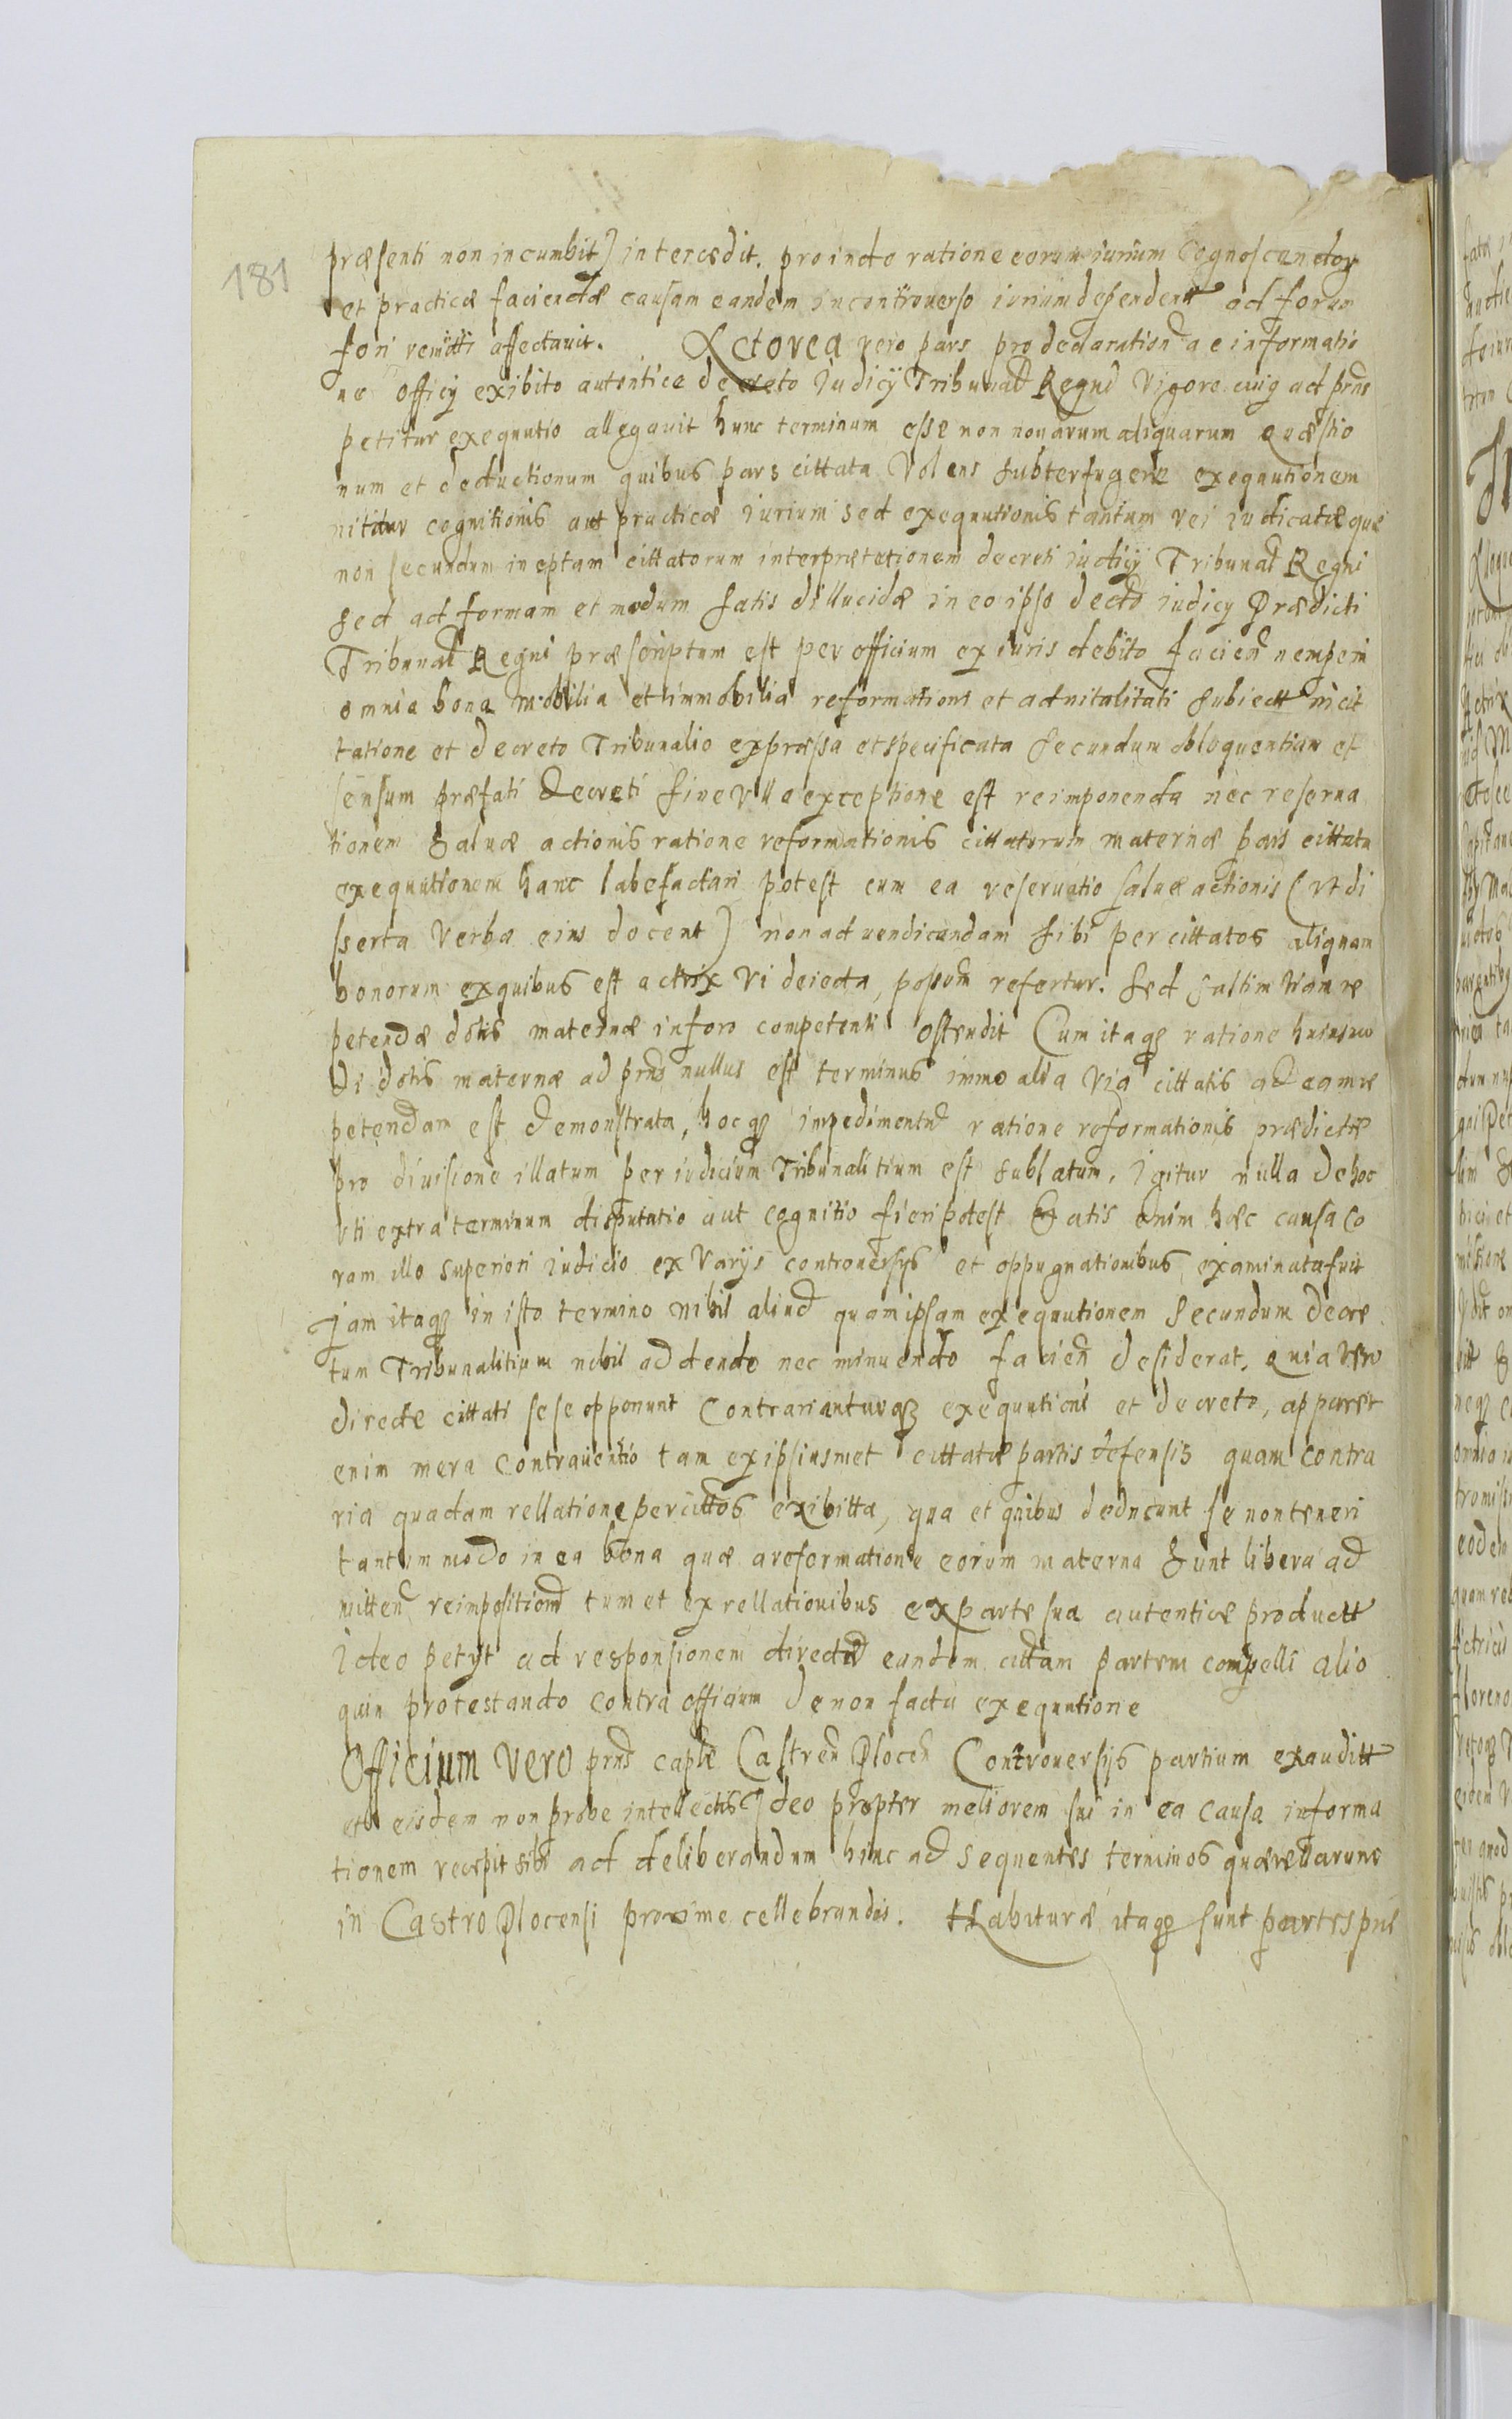 181
præsenti non incumbit) intercædit. proindo ratione eorum iurium Cognoscendor
et practicæ faciendæ causam eandem in controuerso iurium dependent ad forum
fori remitti affectauit. Actorea vero pars pro declaration ac informatio
ne officy exibito autentice decreto Iudicy Tribunal Regni Vigore cuig ad prns
petitur exequutio allegauit hunc terminum esse non nouarum aliquarum quæstio
num et deductionum quibus pars cittata Volens subterfugere exequutionem
nititur cognitionis aut practicæ iurium sed exequutionis tantum rei iudicatæ quæ
non secundum ineptam cittatorum interprætationem decreti iudicy Tribunal Regni
sed ad formam et modum satis dillucidæ in eo ipso decto iudicy Prædicti
Tribunal Regni præscriptum est per officium ex iuris debito faciend nempe in
omnia bona mobilia et immobilia reformationi et aduitalitati subiectt in cit
tatione et decreto Tribunalio expræssa et specificata secundum obloquentiam et
sensum præfati decreti sine vlla exceptione est reimponenda nec reserua
tionem saluæ actionis ratione reformationis cittatorum maternæ pars cittata
exequutionem hanc labefactari potest cum ea reseruatio saluæ actionis (vt di
sserta verba eius docent) non ad uendicandam sibi per cittatos aliquam
bonorum ex quibus est actrix vi deiecta, possom refertur. sed saltim viam re
petendæ dotis maternæ in foro competenti ostendit Cum itaq ratione huiusmo
di dotis maternæ ad prns nullus est terminus immo alia via cittatis ad eam re
petendam est demonstrata, hocq impedimentu ratione reformationis prædictæ
pro diuisione illatum per iudicium Tribunalitium est sublatum. Igitur nulla de hoc
vti extra terminum disputatio aut cognitio fieri potest Satis enim hæc causa co
ram illo superiori iudicio ex varys controuersys et oppugnationibus examinata fuit
Jam itaq in isto termino nihil aliud quam ipsam exequutionem secundum decre
tum Tribunalitium nihil addendo nec minuendo facien desiderat. quia vero
directe cittati sese opponunt contrarianturq exequutioni et decreto, apparet
enim mera contrauentio tam ex ipsiusmet cittatæ partis defensis quam contra
ria quadam rellatione per cittos exibitta, qua et quibus deducunt se non teneri
tantummodo in ea bona quæ a reformatione eorum materna sunt libera ad
mitten reimposition tum et ex rellationibus ex parte sua autenticæ productt
Ideo petyt ad responsionem directa eandem cittam partem compelli alio
quin protestando contra officium de non facta exequutione
Officium Vero prns caple Castren Plocen Controuersys partium exauditt
et eisdem non probe intellectis Ideo propter meliorem sui in ea causa informa
tionem recepit sibi ad deliberandum hinc ad sequentes terminos quærellarum
in Castro Plocensi proxime cellebrandis. Habituræ itaq sunt partes præ